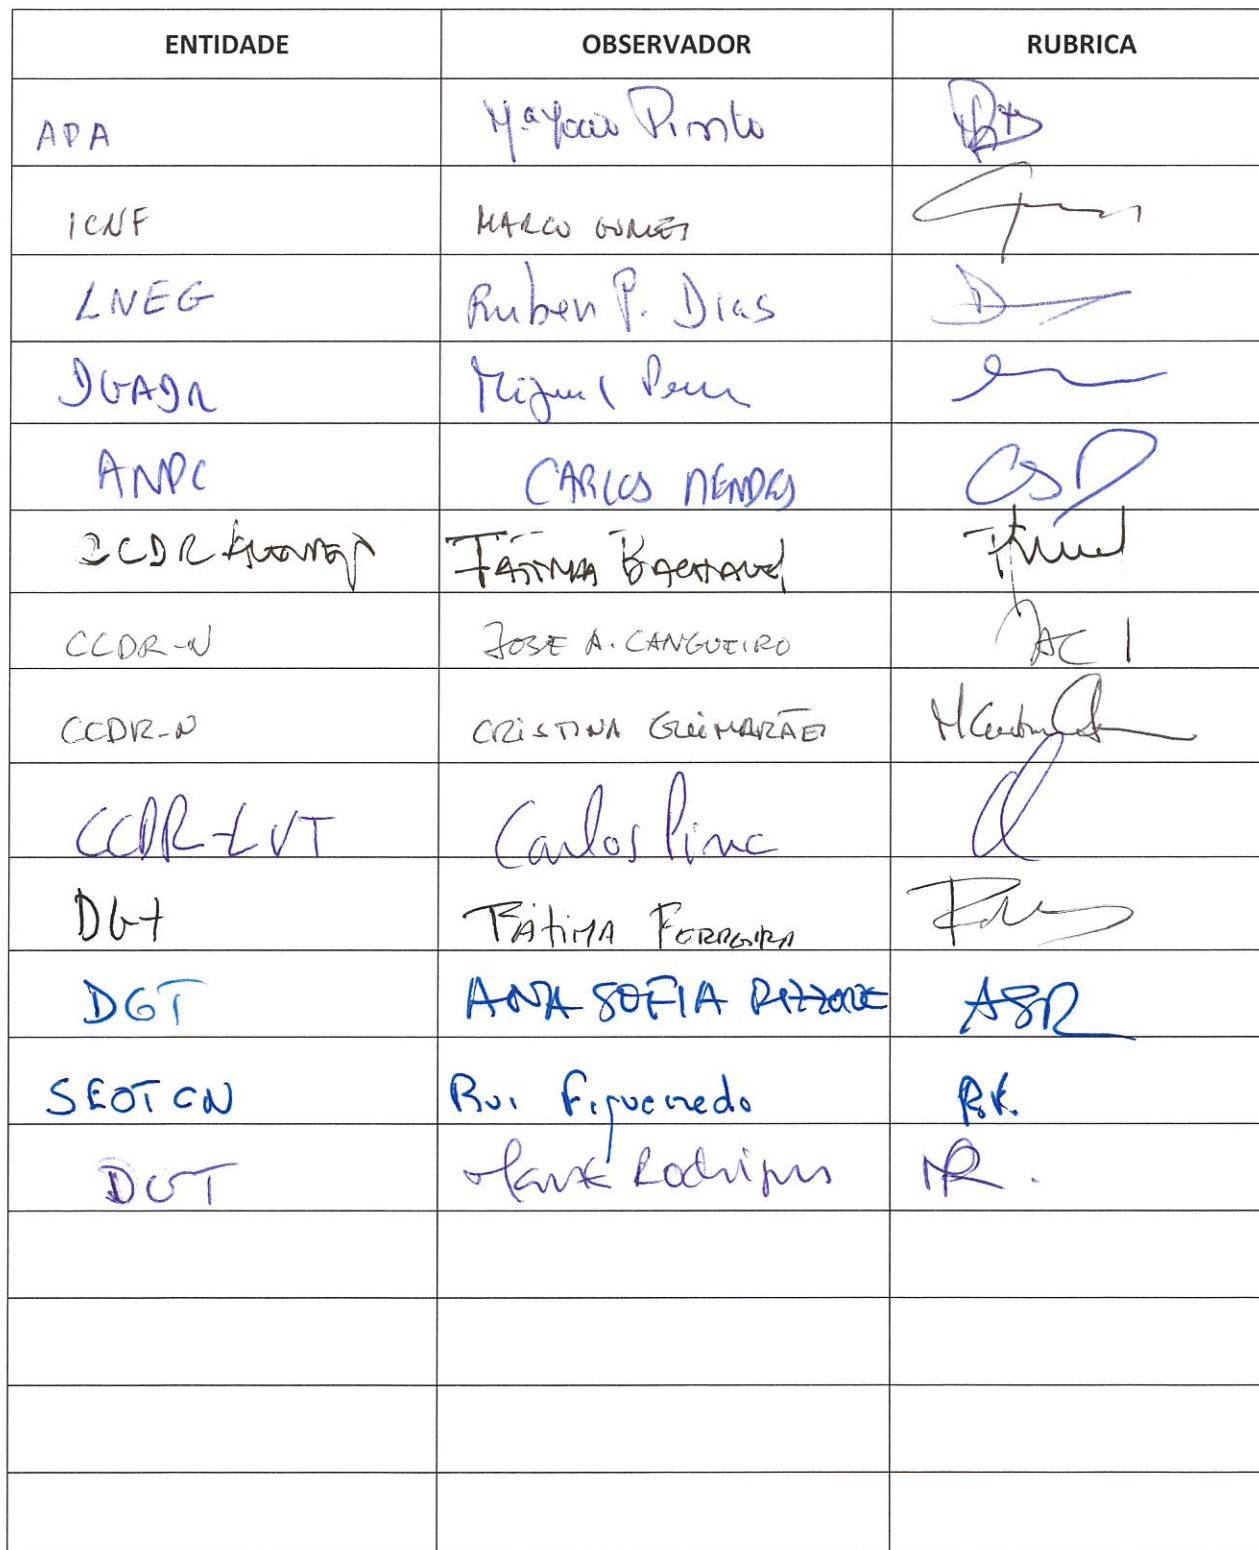 ENTIDADE OBSERVADOR RUBRICA
APA Mª João Pinto
ICNF MARCO GOMES
LNEG Ruben P. Dias
DGADR Miguel
ANPC CARLOS MENDES CSD
CCDR FÁTIMA BACHAREL
CCDR-N JOSE A. CANGUEIRO JAC
CCDR-N CRISTINA GUIMARÃES
CCDR-LVT Carlos Pina
DGT FÁTIMA FERREIRA
DGT ANA SOFIA RIZZONE ASR
SEOTCN Rui Figueiredo R.F.
DGT Rodrigues MR.